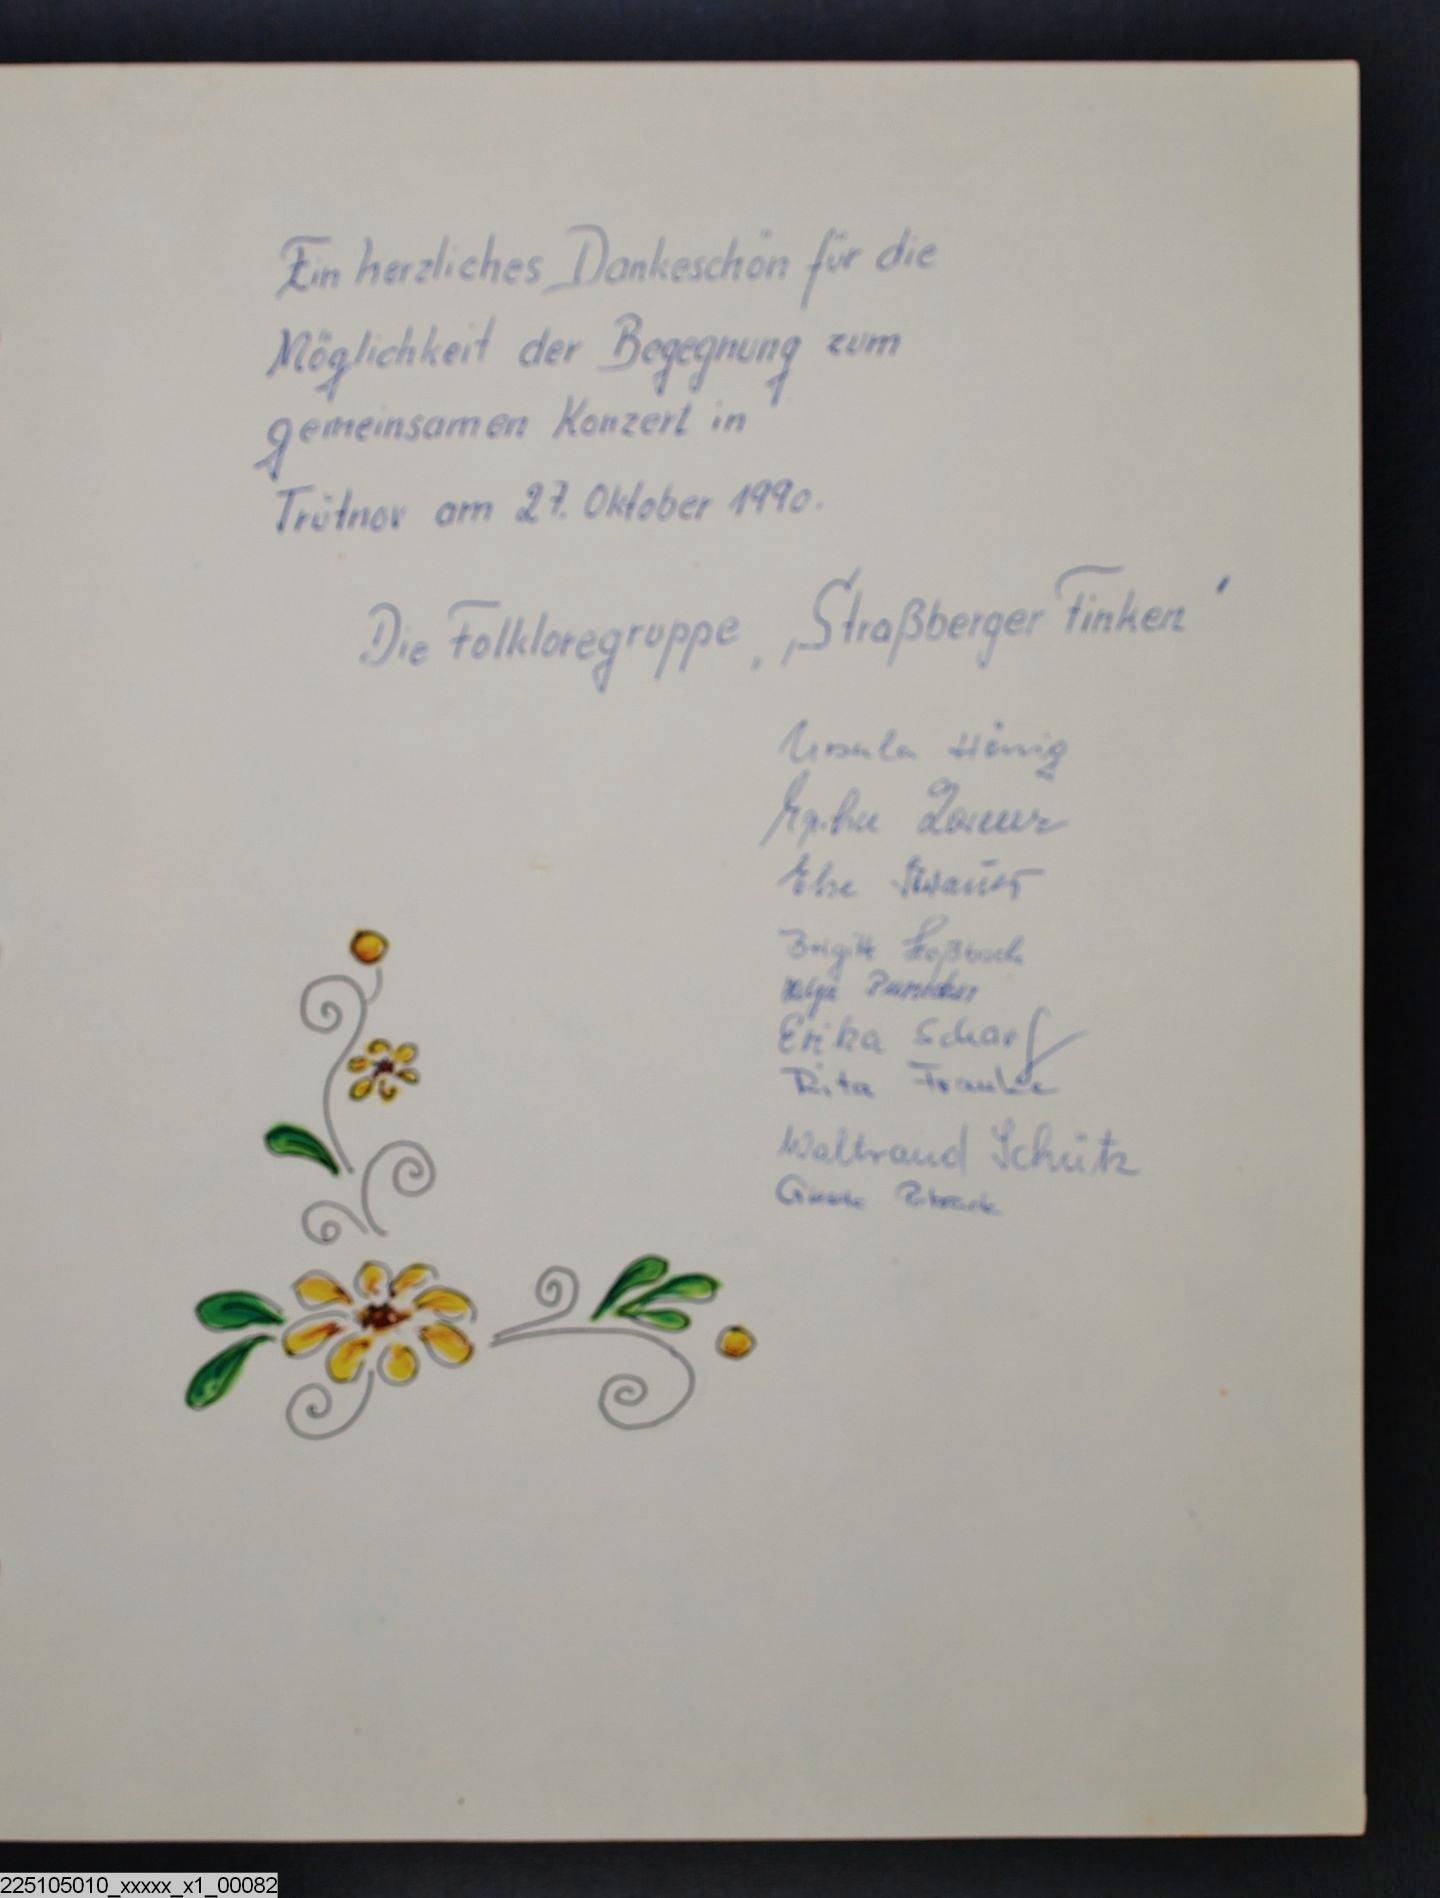 Ein herzliches Dankeschön für die
Möglichkeit der Begegnung zum
gemeinsamen Konzert in
Trütnov am 27. Oktober 1990.
Die Folkloregruppe „Straßberger Finken"
Ursula Hönig
Else
Erika Scharf
Rita Franke
Waltraud Schütz
225105010_xxxxx_x1_00082